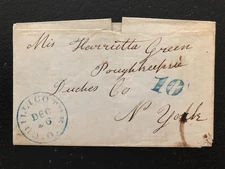 Mis Henrietta Green
Poughkeepsie
Duches Co
N York
10
DEC